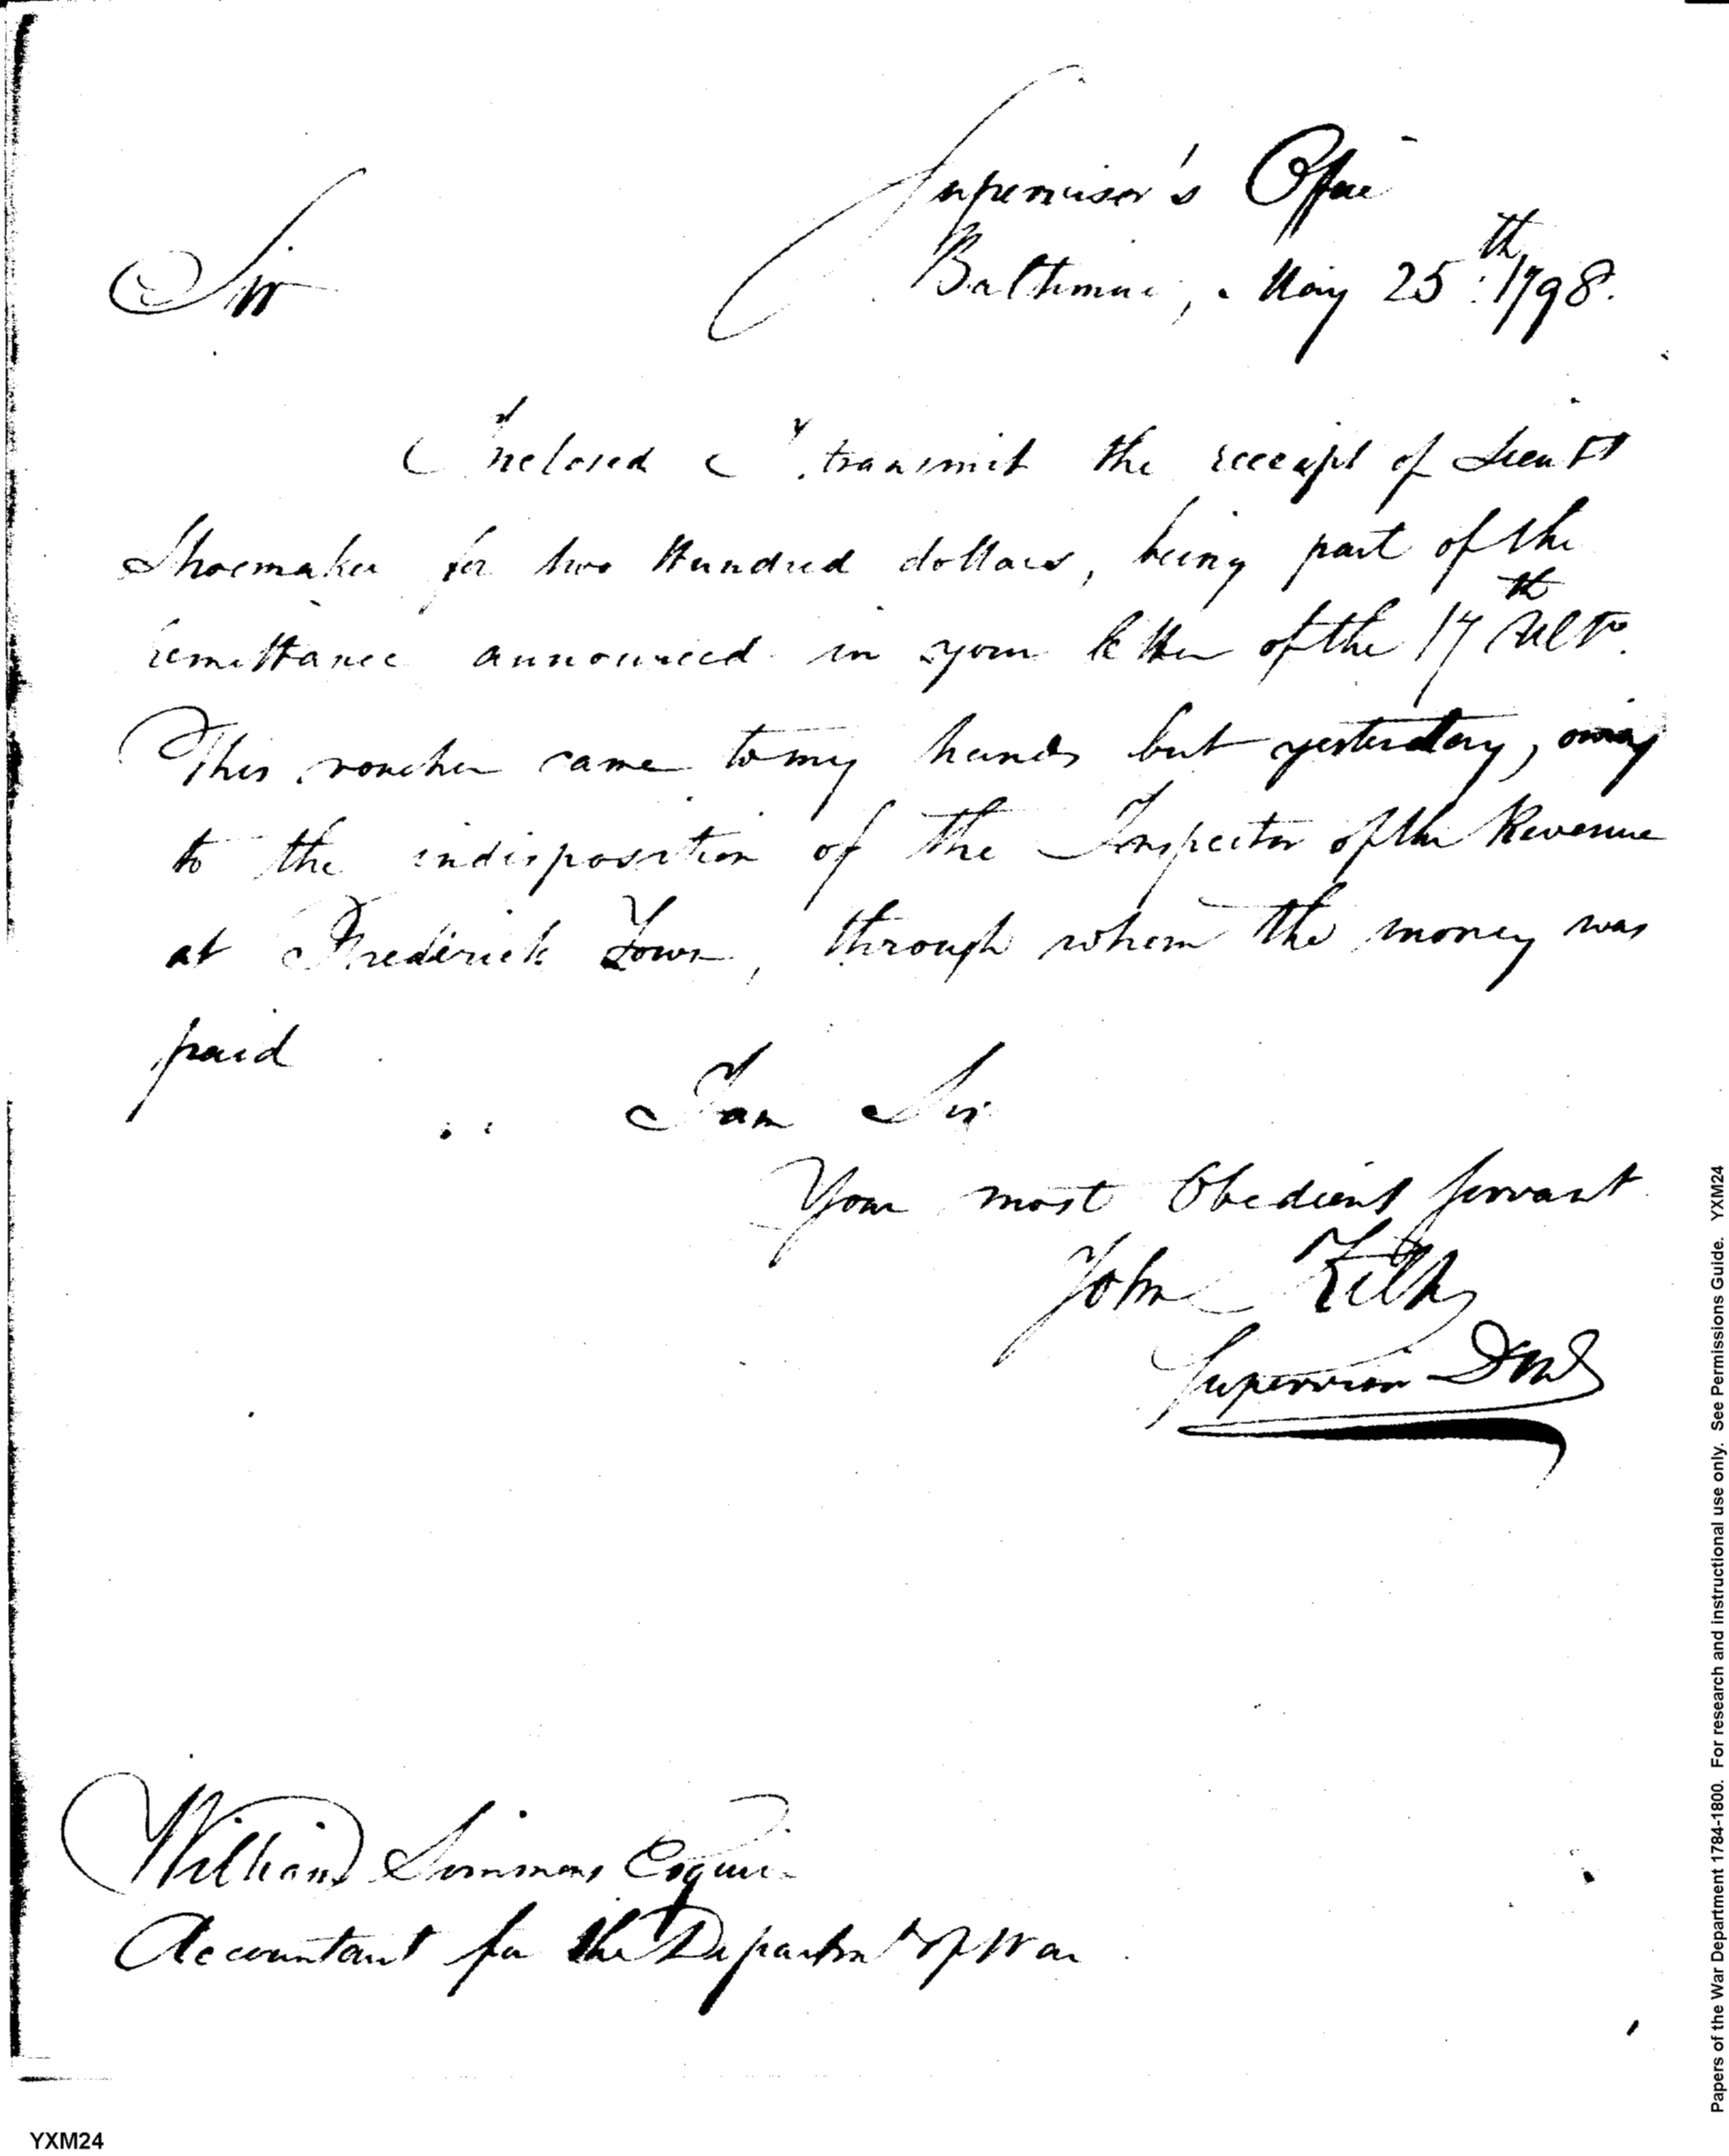 Supervisor's Office
Baltimore, May 25th 1798.
Sir
Inclosed I transmit the receipt of Lieutt
Shoemaker for two Hundred dollars, being part of the
remittance announced in your letter of the 17th Ulto.
This voucher came to my hands but yesterday, owing
to the indisposition of the Inspector of the Revenue
at Frederick Town, through whom the money was
paid
I am Sir
Your most Obedient servant
John Kilty
Supervisor DMd
William Simmons Esquire
Accountant for the Department of War
YXM24
Papers of the War Department 1784-1800. For research and instructional use only. See Permissions Guide. YXM24